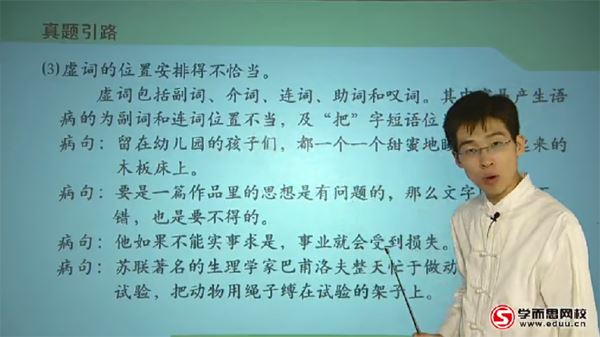 真题引路
(3)虚词的位置安排得不恰当。
虚词包括副词、介词、连词、助词和叹词。其
产生语
病的为副词和连词位置不当，及“把”字短语位
病句：留在幼儿园的孩子们，都一个一个甜蜜地
来的
木板床上。
病句：要是一篇作品里的思想是有问题的，那么文字
错，也是要不得的。
病句：他如果不能实事求是，事业就会受到损失。
病句：苏联著名的生理学家巴甫洛夫整天忙于做动
试验，把动物用绳子缚在试验的架子上。
学而思网校
www.eduu.cn